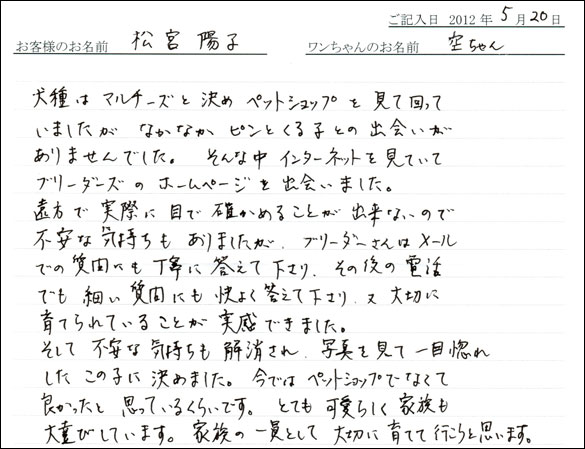 ご記入日 2012年 5月 20日
お客様のお名前 松宮 陽子 ワンちゃんのお名前 空ちゃん
犬種は マルチーズと 決め ペットショップを 見て回って
いましたが なかなか ピンとくる子との 出会いが
ありませんでした。 そんな中 インターネットを見ていて
ブリーダーズの ホームページを出会いました。
遠方で 実際に 目で 確かめることが 出来ないので
不安な気持ちも ありましたが、ブリーダーさんは メール
での質問にも 丁寧に 答えて下さり、その後の 電話
でも 細い 質問にも 快よく 答えて下さり、又 大切に
育てられていることが 実感できました。
そして 不安な 気持ちも 解消され、写真を見て 一目惚れ
した この子に 決めました。今では ペットショップでなくて
良かったと 思っているくらいです。 とても 可愛らしく 家族も
大喜びしています。家族の 一員として 大切に 育てて 行こうと思います。